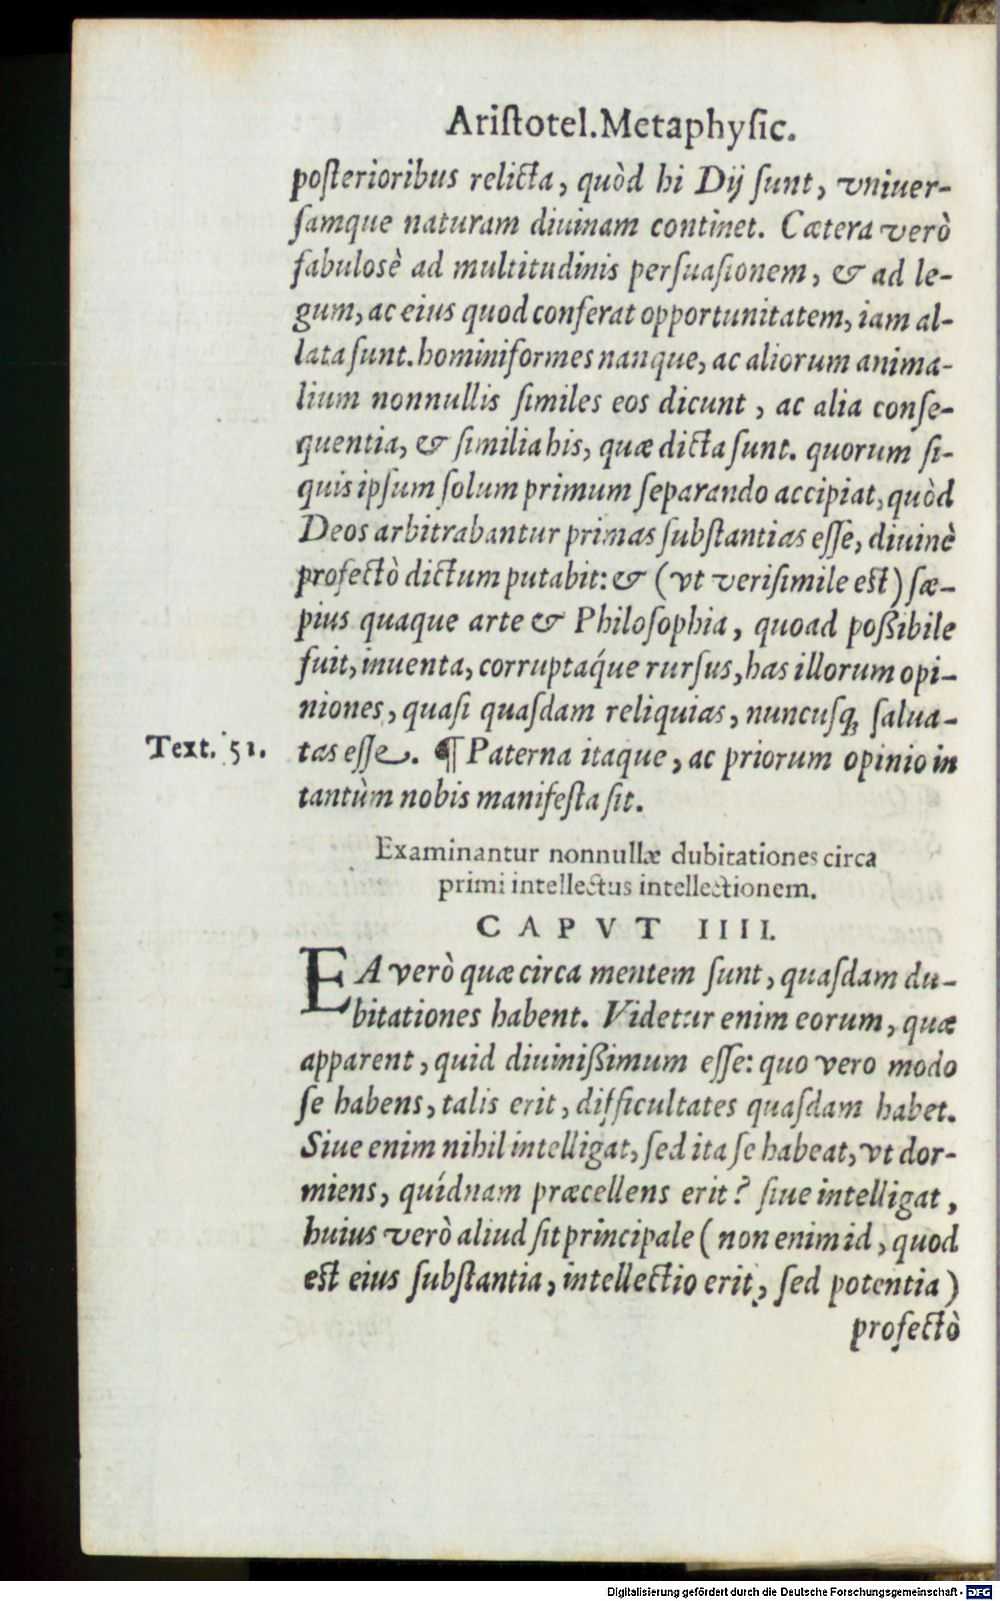 Ariſtotel. Metaphyſic.
poſterioribus relicta, quòd hi Dij ſunt, vniuer-
ſamque naturam diuinam continet. Cætera verò
fabulosè ad multitudinis perſuaſionem, & ad le-
gum, ac eius quod conferat opportunitatem, iam al-
lata ſunt. hominiformes nanque, ac aliorum anima-
lium nonnullis ſimiles eos dicunt, ac alia conſe-
quentia, & ſimilia his, quæ dicta ſunt. quorum ſi-
quis ipſum ſolum primum ſeparando accipiat, quòd
Deos arbitrabantur primas ſubſtantias eſſe, diuinè
profectò dictum putabit: & (vt veriſimile est) ſæ-
pius quaque arte & Philoſophia, quoad poßibile
fuit, inuenta, corruptaq́ue rurſus, has illorum opi-
niones, quaſi quaſdam reliquias, nuncuſq; ſalua-
Text. 51. tas eſſe. ¶ Paterna itaque, ac priorum opinio in
tantùm nobis manifeſta ſit.
Examinantur nonnullæ dubitationes circa
primi intellectus intellectionem.
CAPVT IIII.
EA verò quæ circa mentem ſunt, quaſdam du-
bitationes habent. Videtur enim eorum, quæ
apparent, quid diuinißimum eſſe: quo vero modo
ſe habens, talis erit, difficultates quaſdam habet.
Siue enim nihil intelligat, ſed ita ſe habeat, vt dor-
miens, quídnam præcellens erit? ſiue intelligat,
huius verò aliud ſit principale (non enim id, quod
est eius ſubſtantia, intellectio erit, ſed potentia)
profectò
Digitalisierung gefördert durch die Deutsche Forschungsgemeinschaft - DFG